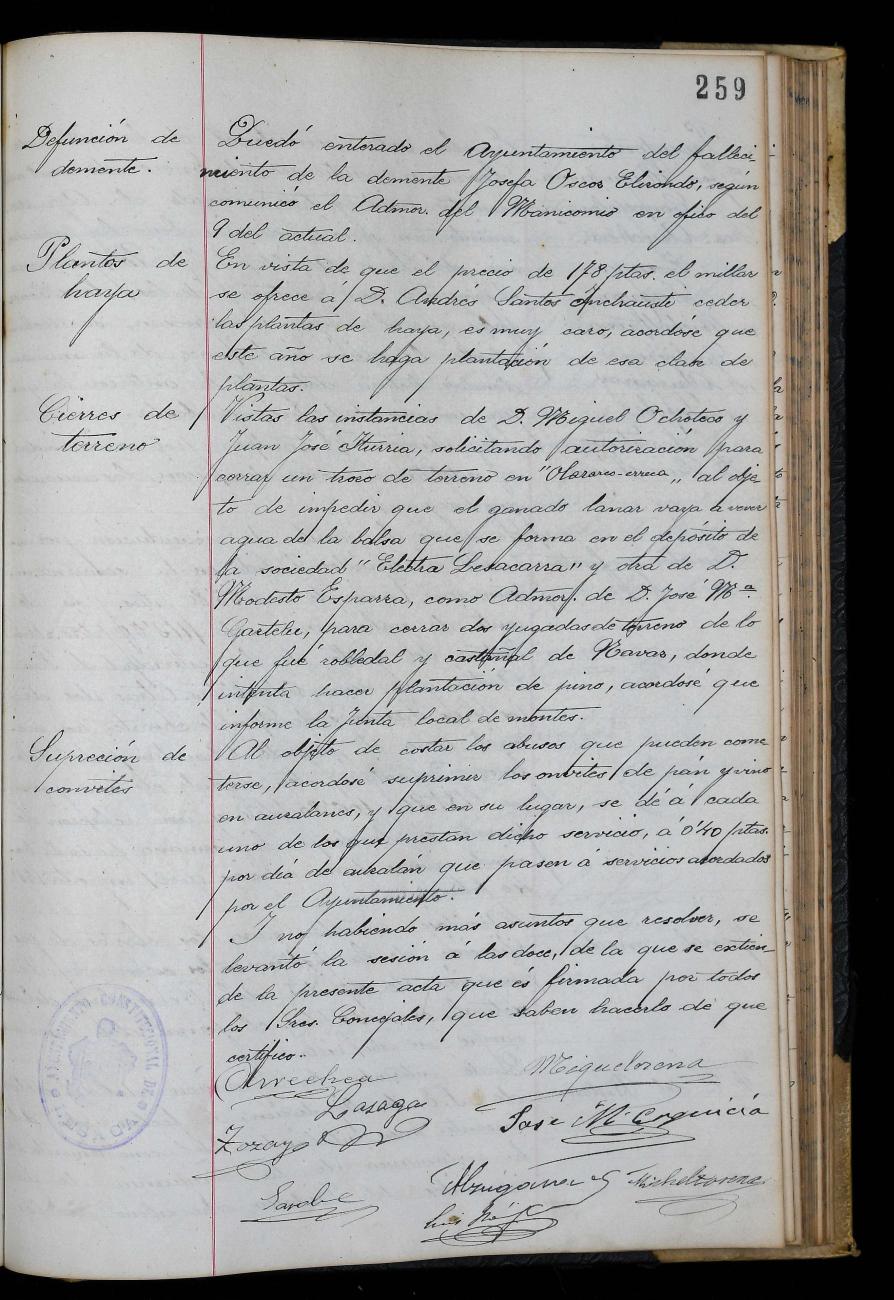 259
Defunción de
demente.
Quedó enterado el Ayuntamiento del falleci-
miento de la demente Josefa Oscoz Elizondo, según
comunicó el Admor. del Manicomio en oficio del
9 del actual.
Plantas de
haya
En vista de que el precio de 178 ptas. el millar
se ofrece á D. Andrés Santos Inchausti ceder
las plantas de haya, es muy caro, acordóse que
este año se haga plantación de esa clase de
plantas.
Cierres de
terreno
Vistas las instancias de D. Miguel Ochoteco y
Juan José Iturria, solicitando autorización para
cerrar un trozo de terreno en "Olazarco-erreca" al obje-
to de impedir que el ganado lanar vaya a vever
agua de la balsa que se forma en el depósito de
la sociedad "Electra Lesacarra" y otra de D.
Modesto Esparza, como Admor. de D. José Mª.
Gartelu, para cerrar dos yugadas de terreno de lo
que fué robledal y castañal de Navaz, donde
intenta hacer plantación de pino, acordosé que
informe la Junta local de montes.
Supreción de
convetes
Al objeto de costar los abusos que pueden come
terse, acordosé suprimir los onvites de pán y vino
en auzalanes, y que en su lugar, se dé á cada
uno de los que prestan dicho servicio, á 0'40 ptas.
por diá de auzalán que pasen á servicios acordados
por el Ayuntamiento.
Y no habiendo más asuntos que resolver, se
levantó la sesión á las doce, de la que se extien-
de la presente acta que és firmada por todos
los Sres. Concejales, que saben hacerlo de que
certifico.
AYUNTAMIENTO CONSTITUCIONAL DE
Arrechea
Miguelorena
Lasaga
José Mª Erquicia
Zozaya
Michelarena
Luis